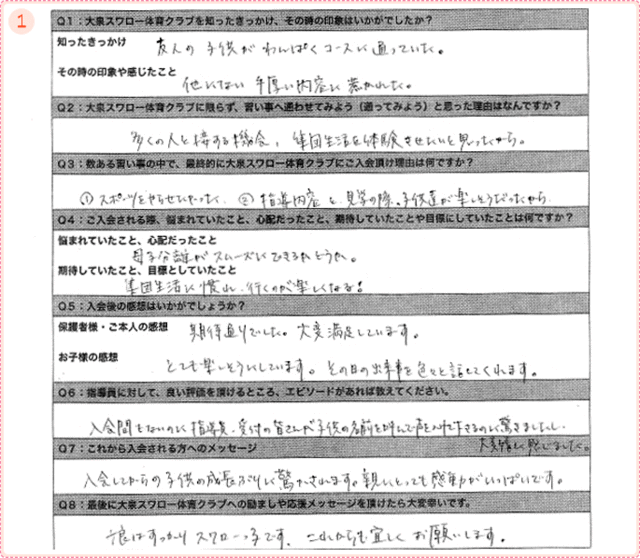 1
Q1：大泉スワロー体育クラブを知ったきっかけ、その時の印象はいかがでしたか？
知ったきっかけ 友人の子供がわんぱくコースに通っていた。
その時の印象や感じたこと
他にない手厚い内容に惹かれた。
Q2：大泉スワロー体育クラブに限らず、習い事へ通わせてみよう（通ってみよう）と思った理由はなんですか？
多くの人と接する機会、集団生活を体験させたいと思ったから。
Q3：数ある習い事の中で、最終的に大泉スワロー体育クラブにご入会頂け理由は何ですか？
① スポーツをやらせたかった ② 指導内容と見学の際、子供達が楽しそうだったから
Q4：ご入会される際、悩まれていたこと、心配だったこと、期待していたことや目標にしていたことは何ですか？
悩まれていたこと、心配だったこと
母子分離がスムーズにできるかどうか。
期待していたこと、目標としていたこと
集団生活に慣れ、行くのが楽しくなる！
Q5：入会後の感想はいかがでしょうか？
保護者様・ご本人の感想 期待通りでした。大変満足しています。
お子様の感想
とても楽しそうにしています。その日の出来事を色々と話してくれます。
Q6：指導員に対して、良い評価を頂けるところ、エピソードがあれば教えてください。
入会間もないのに指導員、受付の皆さんが子供の名前を呼んで声を掛けて下さるのに驚きましたし、
大変嬉しく感じました。
Q7：これから入会される方へのメッセージ
入会してからの子供の成長ぶりに驚かされます。親にとっても感動がいっぱいです。
Q8：最後に大泉スワロー体育クラブへの励ましや応援メッセージを頂けたら大変幸いです。
はすっかりスワローっ子です。これからも宜しくお願いします。